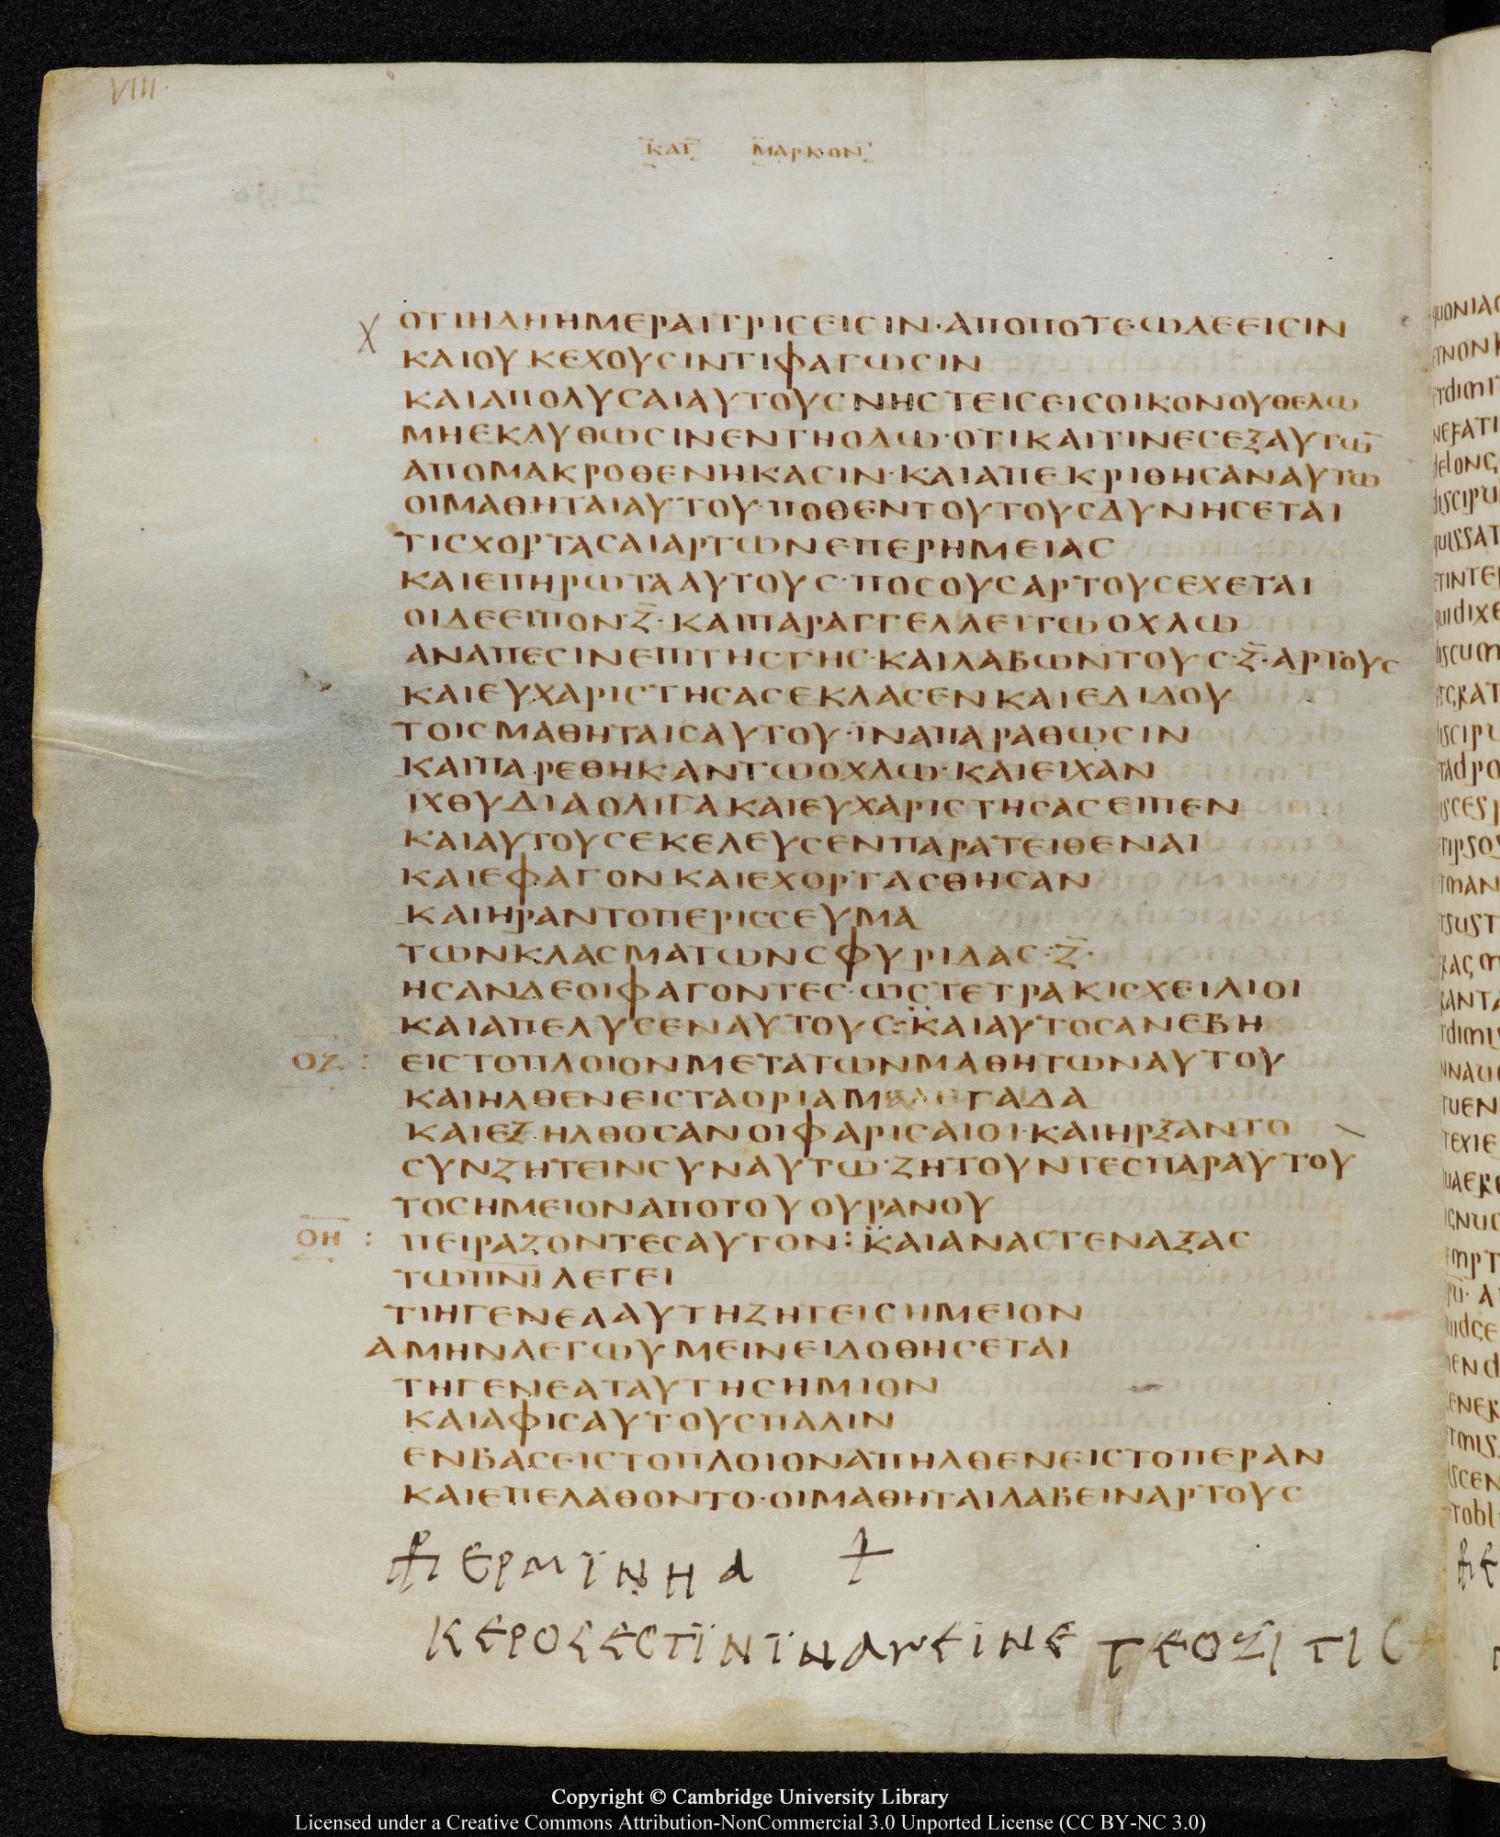 VIII
ΚΑΤ ΜΑΡΚΟΝ
ΟΤΙΗΔΗΗΜΕΡΑΙΤΡΙСΕΙСΙΝ·ΑΠΟΠΟΤΕΩΔΕΕΙСΙΝ
ΚΑΙΟΥΚΕΧΟΥСΙΝΤΙΦΑΓΩСΙΝ
ΚΑΙΑΠΟΛΥСΑΙΑΥΤΟΥСΝΗСΤΕΙСΕΙСΟΙΚΟΝΟΥΘΕΛΩ
ΜΗΕΚΛΥΘΩСΙΝΕΝΤΗΟΔΩ·ΟΤΙΚΑΙΤΙΝΕСΕΞΑΥΤΩ̅
ΑΠΟΜΑΚΡΟΘΕΝΗΚΑСΙΝ·ΚΑΙΑΠΕΚΡΙΘΗСΑΝΑΥΤΩ
ΟΙΜΑΘΗΤΑΙΑΥΤΟΥ·ΠΟΘΕΝΤΟΥΤΟΥСΔΥΝΗСΕΤΑΙ
ΤΙСΧΟΡΤΑСΑΙΑΡΤΩΝΕΠΕΡΗΜΕΙΑС
ΚΑΙΕΠΗΡΩΤΑΑΥΤΟΥС·ΠΟСΟΥСΑΡΤΟΥСΕΧΕΤΑΙ
ΟΙΔΕΕΙΠΟΝ·Ζ̅·ΚΑΙΠΑΡΑΓΓΕΛΛΕΙΤΩΟΧΛΩ
ΑΝΑΠΕСΙΝΕΠΙΤΗСΓΗС·ΚΑΙΛΑΒΩΝΤΟΥС·Ζ̅·ΑΡΤΟΥС
ΚΑΙΕΥΧΑΡΙСΤΗСΑСΕΚΛΑСΕΝΚΑΙΕΔΙΔΟΥ
ΤΟΙСΜΑΘΗΤΑΙСΑΥΤΟΥ·ΪΝΑΠΑΡΑΘΩСΙΝ
ΚΑΙΠΑΡΕΘΗΚΑΝΤΩΟΧΛΩ·ΚΑΙΕΙΧΑΝ
ΙΧΘΥΔΙΑΟΛΙΓΑΚΑΙΕΥΧΑΡΙСΤΗСΑСΕΙΠΕΝ
ΚΑΙΑΥΤΟΥСΕΚΕΛΕΥСΕΝΠΑΡΑΤΕΙΘΕΝΑΙ
ΚΑΙΕΦΑΓΟΝΚΑΙΕΧΟΡΤΑСΘΗСΑΝ
ΚΑΙΗΡΑΝΤΟΠΕΡΙССΕΥΜΑ
ΤΩΝΚΛΑСΜΑΤΩΝСΦΥΡΙΔΑС·Ζ̅·
ΗСΑΝΔΕΟΙΦΑΓΟΝΤΕС·ΩСΤΕΤΡΑΚΙСΧΕΙΛΙΟΙ
ΚΑΙΑΠΕΛΥСΕΝΑΥΤΟΥС:ΚΑΙΑΥΤΟСΑΝΕΒΗ
ΟΖ : ΕΙСΤΟΠΛΟΙΟΝΜΕΤΑΤΩΝΜΑΘΗΤΩΝΑΥΤΟΥ
ΚΑΙΗΛΘΕΝΕΙСΤΑΟΡΙΑΜΑΓΑΔΑ
ΚΑΙΕΞΗΛΘΟСΑΝΟΙΦΑΡΙСΑΙΟΙ·ΚΑΙΗΡΞΑΝΤΟ
СΥΝΖΗΤΕΙΝСΥΝΑΥΤΩ·ΖΗΤΟΥΝΤΕСΠΑΡΑΥΤΟΥ
ΤΟСΗΜΕΙΟΝΑΠΟΤΟΥΟΥΡΑΝΟΥ
ΟΗ : ΠΕΙΡΑΖΟΝΤΕСΑΥΤΟΝ:ΚΑΙΑΝΑСΤΕΝΑΞΑС
ΤΩΠ̅Ν̅Ι̅ΛΕΓΕΙ
ΤΙΗΓΕΝΕΑΑΥΤΗΖΗΤΕΙСΗΜΕΙΟΝ
ΑΜΗΝΛΕΓΩΥΜΕΙΝΕΙΔΟΘΗСΕΤΑΙ
ΤΗΓΕΝΕΑΤΑΥΤΗСΗΜΙΟΝ
ΚΑΙΑΦΙСΑΥΤΟΥСΠΑΛΙΝ
ΕΝΒΑСΕΙСΤΟΠΛΟΙΟΝΑΠΗΛΘΕΝΕΙСΤΟΠΕΡΑΝ
ΚΑΙΕΠΕΛΑΘΟΝΤΟ·ΟΙΜΑΘΗΤΑΙΛΑΒΕΙΝΑΡΤΟΥС
ΕΡΜΪΝΗΑ +
ΚΕΡΟСΕСΤΪΝ
Copyright © Cambridge University Library
Licensed under a Creative Commons Attribution-NonCommercial 3.0 Unported License (CC BY-NC 3.0)